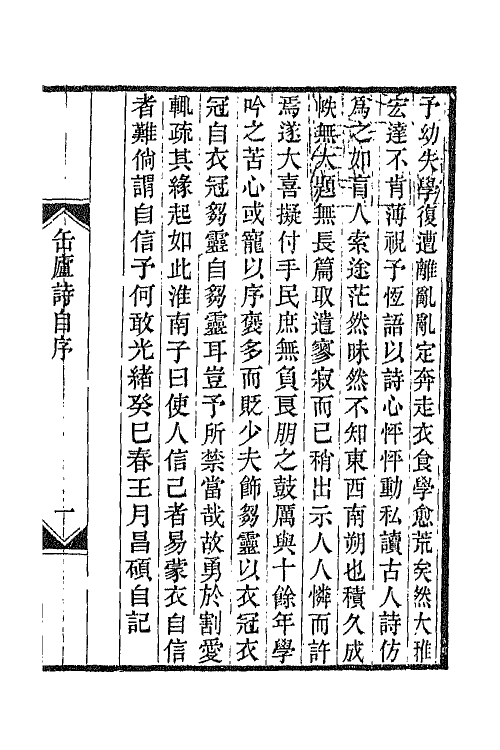 予幼失學復遭離亂亂定奔走衣食學愈荒矣然大雅
宏達不肯薄視予恆語以詩心怦怦動私讀古人詩仿
爲之如盲人索途茫然昧然不知東西南朔也積久成
帙無大題無長篇取遣寥寂而已稍出示人人憐而許
焉遂大喜擬付手民庶無負良朋之鼓厲與十餘年學
吟之苦心或寵以序褒多而貶少夫飾芻靈以衣冠衣
冠自衣冠芻靈自芻靈耳豈予所禁當哉故勇於割愛
輒疏其緣起如此淮南子曰使人信己者易蒙衣自信
者難倘謂自信予何敢光緒癸巳春王月昌碩自記
缶廬詩自序
一